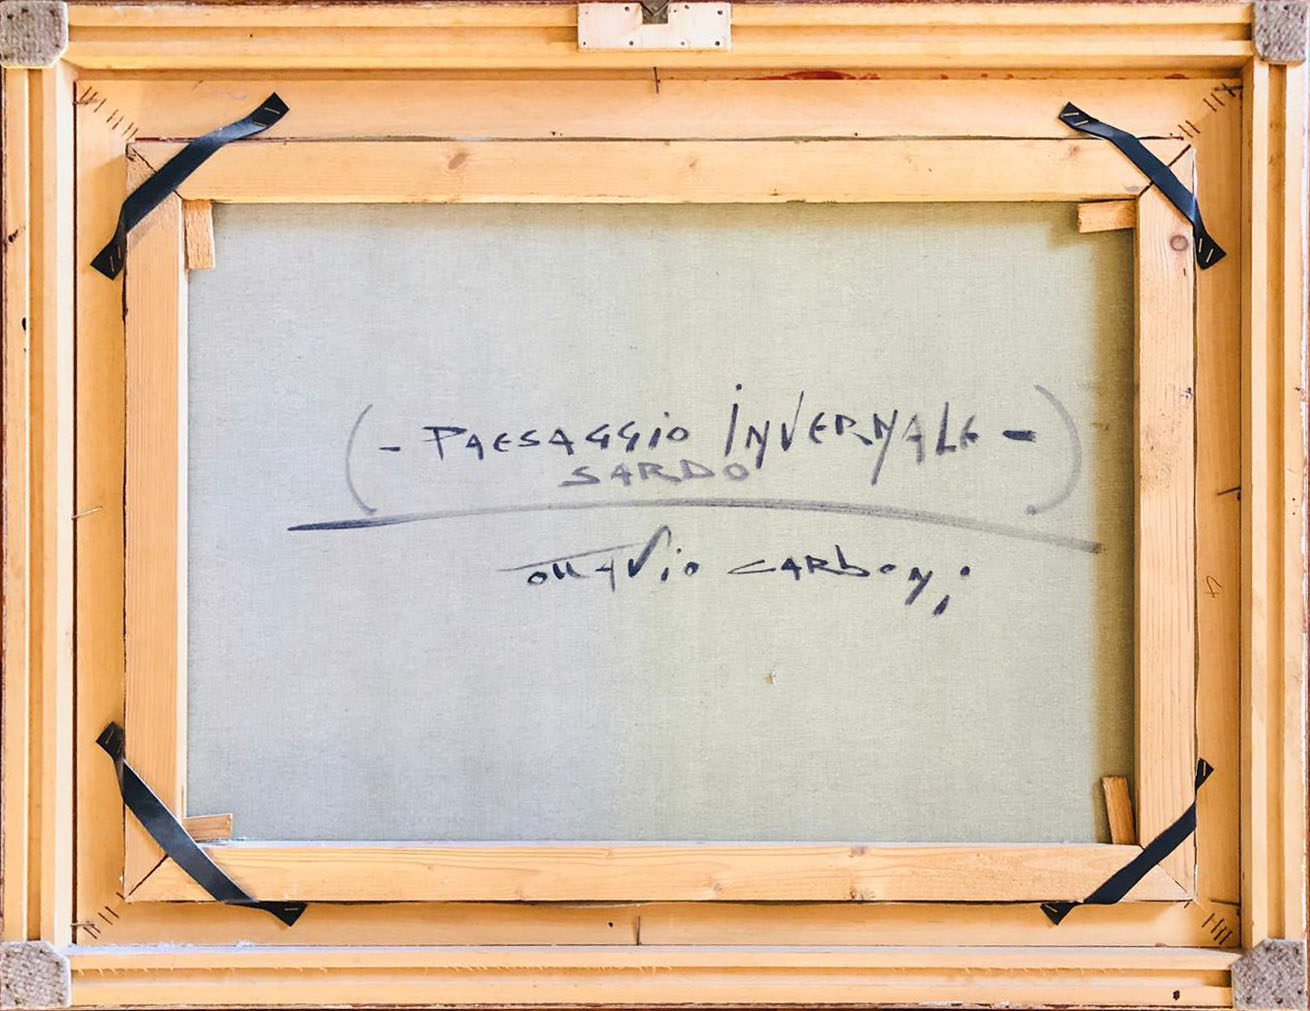 (- PAESAGGIO INVERNALE -)
SARDO
ottavio carboni